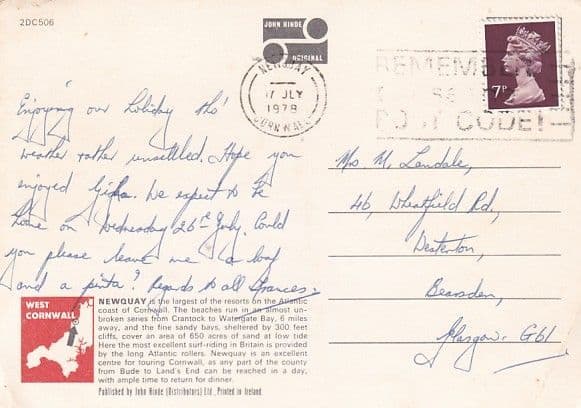 2DC506
JOHN HINDE
ORIGINAL
NEWQUAY
17 JLY
1978
CORNWALL
REMEMBER
CODE!
7P
Enjoying our holiday tho'
weather rather unsettled. Hope you
enjoyed We expect to be
home on Wednesday 26th July. Could
you please leave me a loaf
and a pinta? Regards to all Frances.
Mrs. M. Landale,
46, Wheatfield Rd.,
Bearsden,
Glasgow. G61
WEST
CORNWALL
NEWQUAY is the largest of the resorts on the Atlantic
coast of Cornwall. The beaches run in an almost un-
broken series from Crantock to Watergate Bay, 6 miles
away, and the fine sandy bays, sheltered by 300 feet
cliffs, cover an area of 650 acres of sand at low tide
Here the most excellent surf-riding in Britain is provided
by the long Atlantic rollers. Newquay is an excellent
centre for touring Cornwall, as any part of the county
from Bude to Land's End can be reached in a day,
with ample time to return for dinner.
Published by John Hinde (Distributors) Ltd., Printed in Ireland